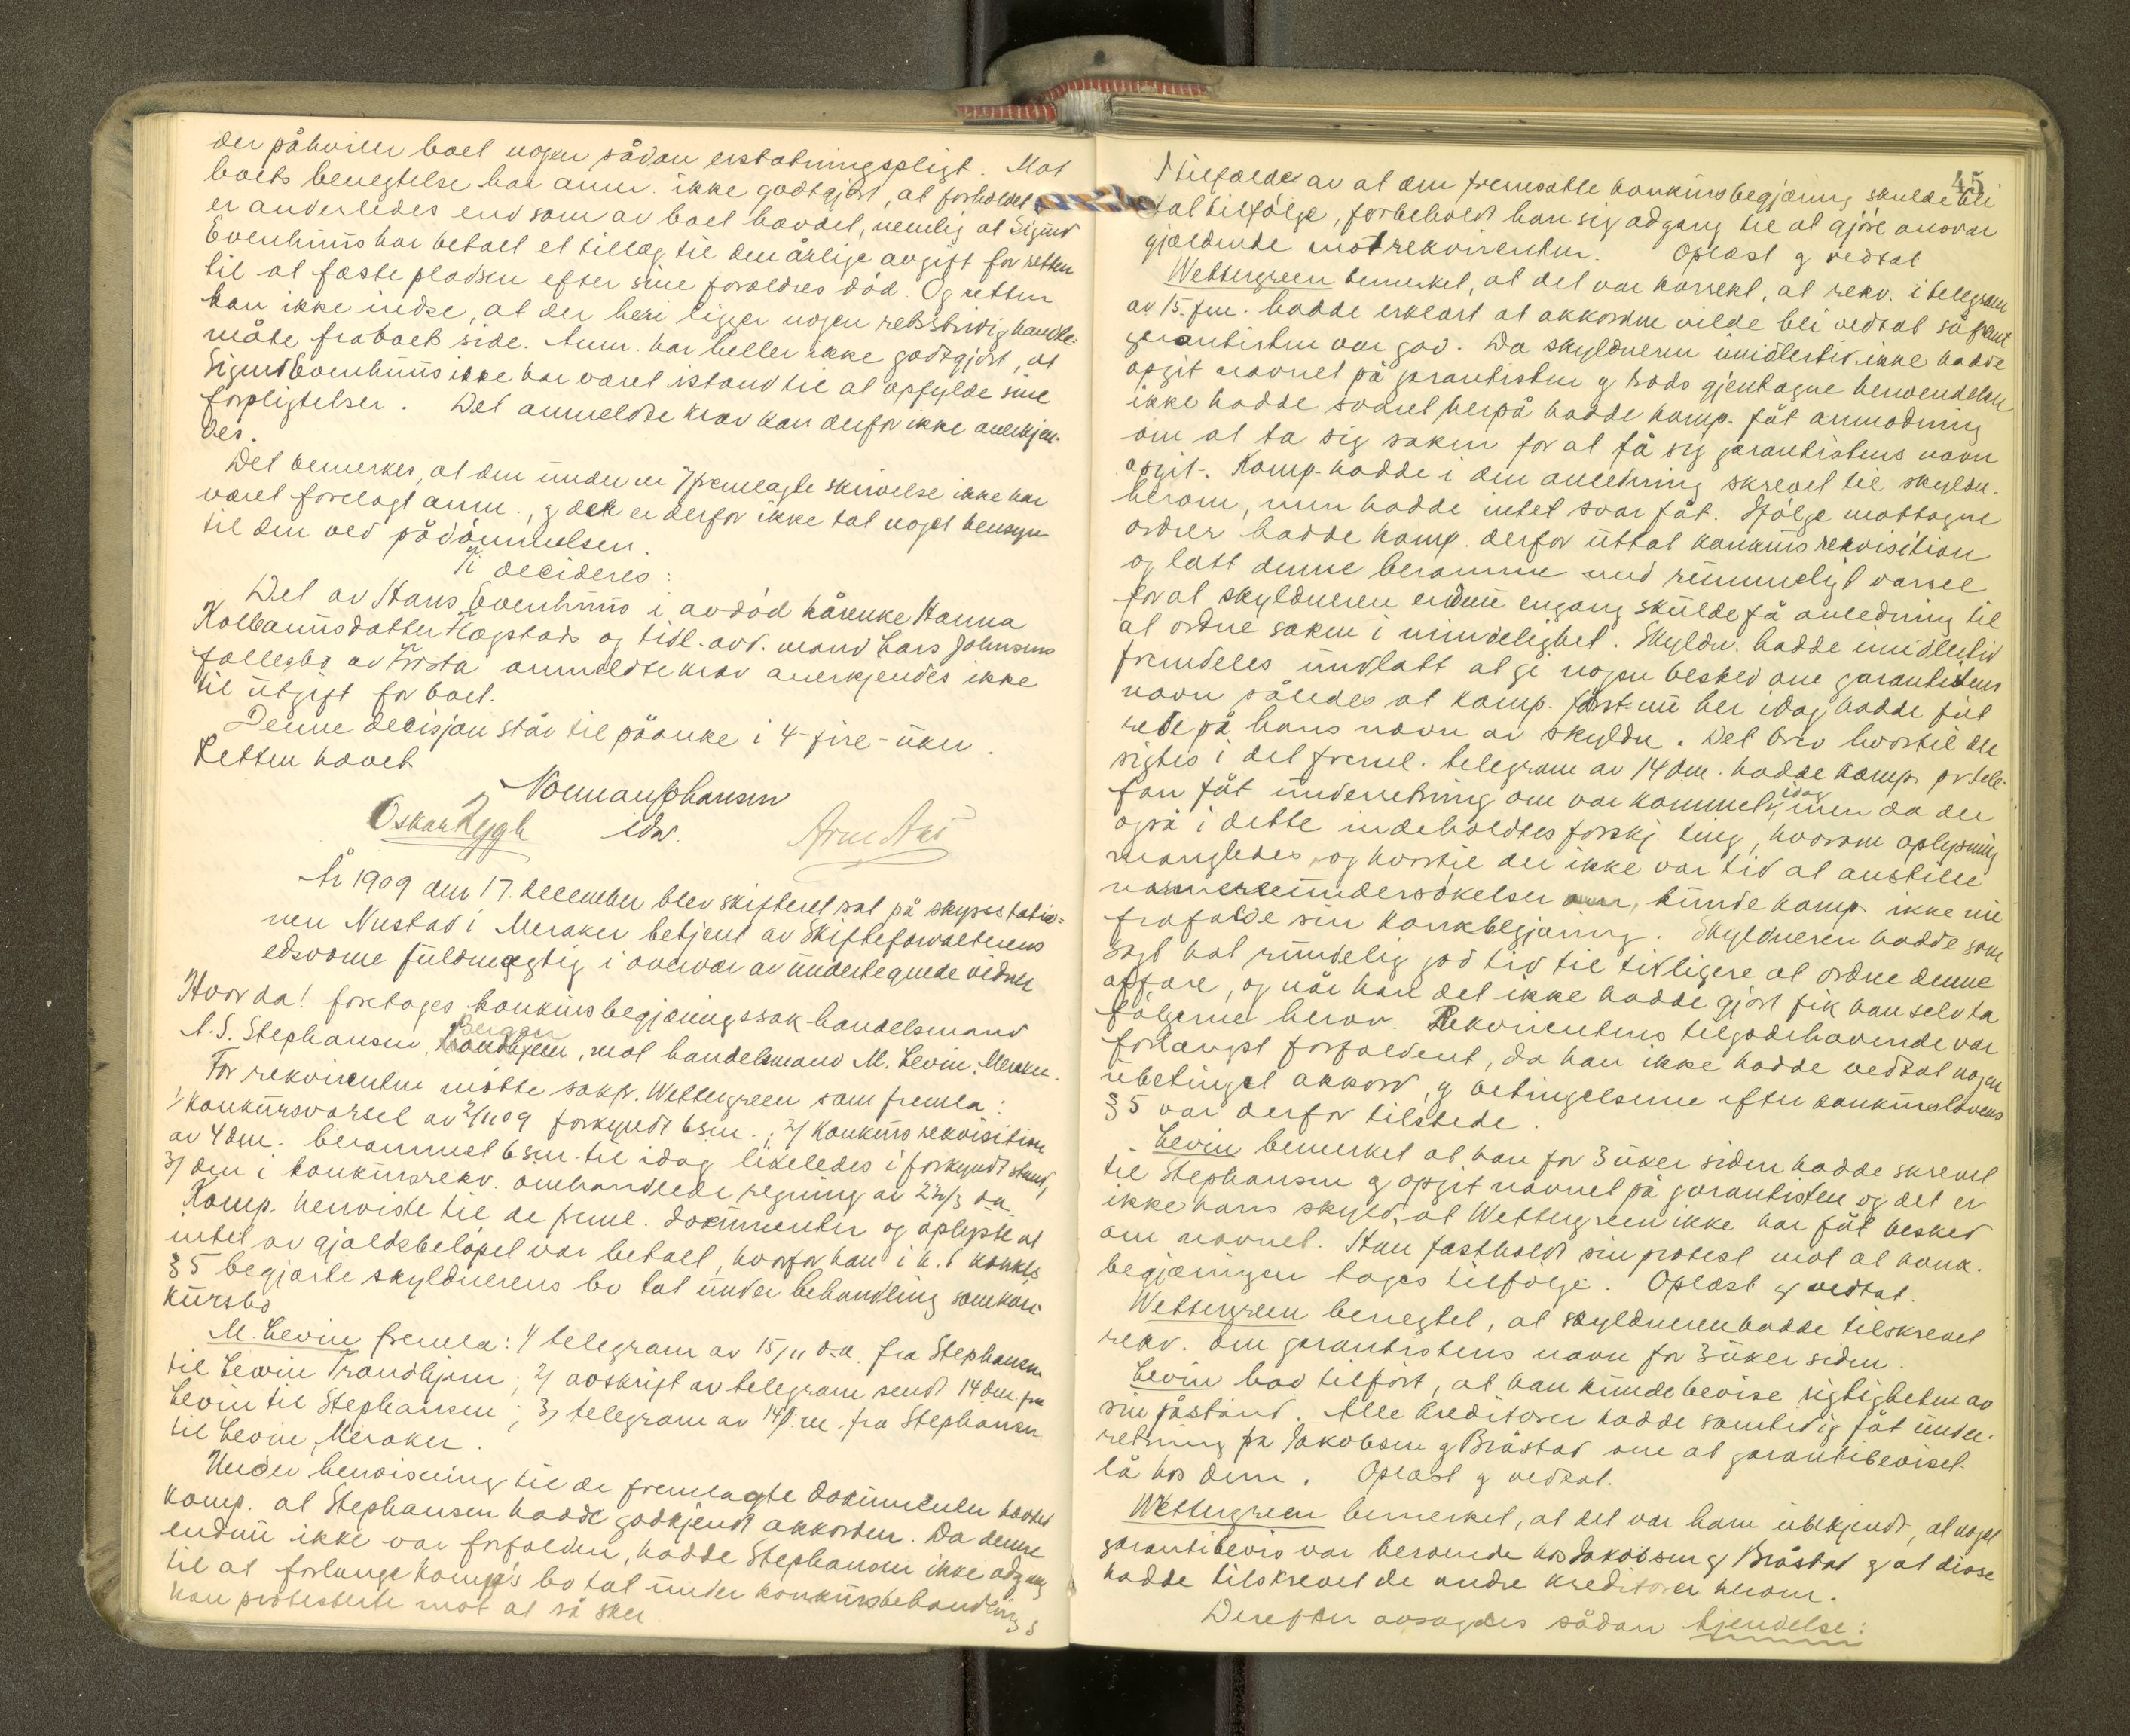 der påhviler boet nogen sådan erstatningspligt. Mot
boets benegtelse har anm. ikke godtgjort, at forholdet
er anderledes end som av boet hævdet, nemlig at Sigurd
Evenhuus har betalt et tillæg til den årlige avgift for retten
til at fæste pladsen efter sine forældres død. Og retten
kan ikke indse, at der heri ligger nogen retsstridig handle-
måte fra boets side. Anm. har heller ikke godtgjort, at
Sigurd Evenhuus ikke har været istand til at opfylde sine
forpligtelser. Det anmeldte krav kan derfor ikke anerkjen-
des.
Det bemerkes, at den under nr 7 fremlagte skrivelse ikke har
været forelagt anm., og det er derfor ikke tat noget hensyn
til den ved pådömmelsen.
Ti decideres:
Det av Hans Evenhuus i avdöd kårenke Hanna
Kolbanusdatter Hogstads og tidl. avd. mand Lars Johnsens
fællesbo av Frosta anmeldte krav anerkjendes ikke
til utgift for boet.
Denne decisjon står til påanke i 4-fire-uker.
Retten hævet.
Norman Johansen
Oskar Rygh edsv. Arne Aas
År 1909 den 17. december blev skifteret sat på skysstatio-
nen Nustad i Meraker betjent av Skifteforvalterens
edsvorne fuldmægtig i overvær av undertegnede vidner
Hvorda! foretoges konkursbegjæringssak handelsmand
A. S. Stephansen, Bergen, mot handelsmand M. Levin, Meraker.
For rekvirenten mötte sakf. Wettergreen som fremla:
1/ Konkursvarsel av 2/11 09 forkyndt 6 s.m.; 2/ Konkurs rekvisition
av 4 dm. berammet 6 s.m. til idag likeledes i forkyndt stand,
3/ den i konkursrekv. omhandlede regning av 22/3 d.a.
Komp. henviste til de freml. dokumenter og oplyste at
intet av gjældsbelöpet var betalt, hvorfor han i h. t. konkl.
§ 5 begjærte skyldnerens bo tat under behandling som kon-
kursbo
M. Levin fremla: 1/ telegram av 15/11 d.a. fra Stephansen
til Levin Trondhjem; 2/ avskrift av telegram sendt 14 dm. fra
Levin til Stephansen; 3/ telegram av 14 d.m. fra Stephansen
til Levin, Meraker.
Under henvisning til de fremlagte dokumenter hævdet
komp. at Stephansen hadde godkjendt akkorden. Da denne
endnu ikke var forfalden, hadde Stephansen ikke adgang
til at forlange komp's bo tat under konkursbehandling &
han protesterte mot at så sker.
45
I tilfælde av at den fremsatte konkursbegjæring skulde bli
tat tilfölge, forbeholdt han sig adgang til at gjöre ansvar
gjældende mot rekvirenten. Oplæst og vedtat
Wettergreen bemerket, at det var korrekt, at rekv. i telegram
av 15. f.m. hadde erklært at akkorden vilde bli vedtat såfremt
garantisten var god. Da skyldneren imidlertid ikke hadde
opgit navnet på garantisten og trods gjentagne henvendelser
ikke hadde svaret herpå hadde komp. fåt anmodning
om at ta sig saken for at få sig garantistens navn
opgit. Komp. hadde i den anledning skrevet til skyldn.
herom, men hadde intet svar fåt. Ifölge mottagne
ordrer hadde komp. derfor uttat konkurs rekvisition
og latt denne beramme med rummeligt varsel
for at skyldneren endnu engang skulde få anledning til
at ordne saken i mindelighet. Skyldn. hadde imidlertid
fremdeles undlatt at gi nogen besked om garantistens
navn således at komp. först nu her idag hadde fåt
rede på hans navn av skyldn. Det brev hvortil der
sigtes i det freml. telegram av 14 dm. hadde komp. pr tele-
fon fåt underretning om var kommet idag, men da der
også i dette indeholdtes forskj. ting, hvorom oplysning
mangledes, og hvortil der ikke var tid at anstille
nærmere undersökelser, kunde komp. ikke nu
frafalde sin konkbegjæring. Skyldneren hadde som
sagt hat rundelig god tid til tidligere at ordne denne
affære, og når han det ikke hadde gjort fik han selv ta
fölgerne herav. Rekvirentens tilgodehavende var
forlængst forfaldent, da han ikke hadde vedtat nogen
ubetinget akkord, og betingelserne efter konkurslovens
§ 5 var derfor tilstede.
Levin bemerket at han for 3 uker siden hadde skrevet
til Stephansen og opgit navnet på garantisten og det er
ikke hans skyld, at Wettergreen ikke har fåt besked
om navnet. Han fastholdt sin protest mot at konk.
begjæringen tages tilfölge. Oplæst og vedtat.
Wettergreen benegtet, at skyldneren hadde tilskrevet
rekv. om garantistens navn for 3 uker siden.
Levin bad tilfört, at han kunde bevise rigtigheten av
sin påstand. Alle kreditorer hadde samtidig fåt under-
retning fra Jakobsen og Bråstad om at garantibeviset
lå hos dem. Oplæst og vedtat.
Wettergreen bemerket, at det var ham ubekjendt, at noget
garantibevis var beroende hos Jakobsen og Bråstad og at disse
hadde tilskrevet de andre kreditorer herom.
Derefter avsagdes sådan kjendelse: